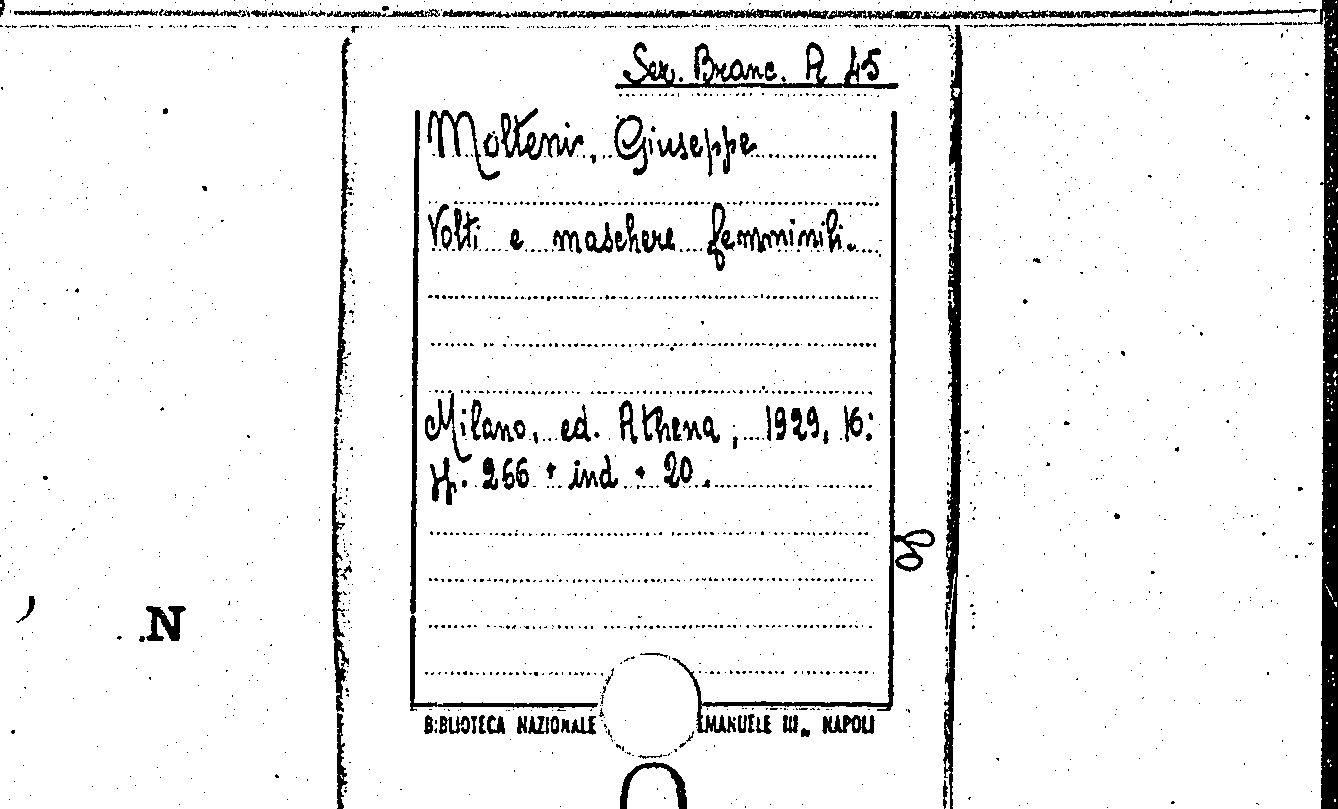 Sez. Branc. A 45
Molteni, Giuseppe
Volti e maschere femminili.
Milano, ed. Athena, 1929, 16:
pp. 266 + ind + 20.
N
BIBLIOTECA NAZIONALE EMANUELE III„ NAPOLI